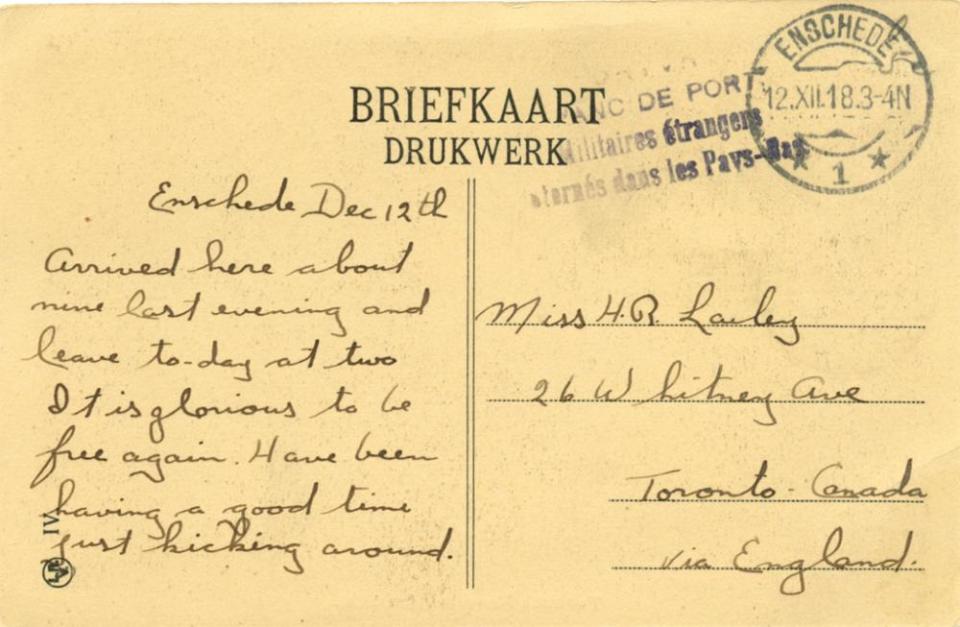 BRIEFKAART
DRUKWERK
ANC DE PORT
Militaires étrangers
nternés dans les Pays-Bas
ENSCHEDE
12.XII.18.3-4N
1
Enschede Dec 12th
Arrived here about
nine last evening and
leave to-day at two
It is glorious to be
free again. Have been
having a good time
just kicking around.
IV
Miss H.R. Lailey
26 Whitney Ave
Toronto - Canada
via England.